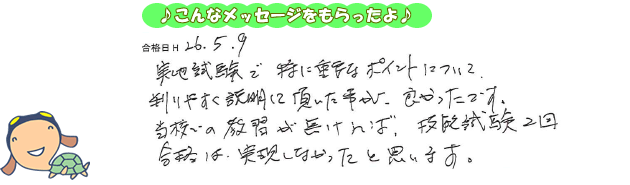 ♪こんなメッセージをもらったよ♪
合格日 H 26.5.9
実地試験で 特に重要なポイントについて、
判りやすく説明して頂いた事が、良かったです。
当校での教習が無ければ、技能試験2回
合格は、実現しなかったと思います。